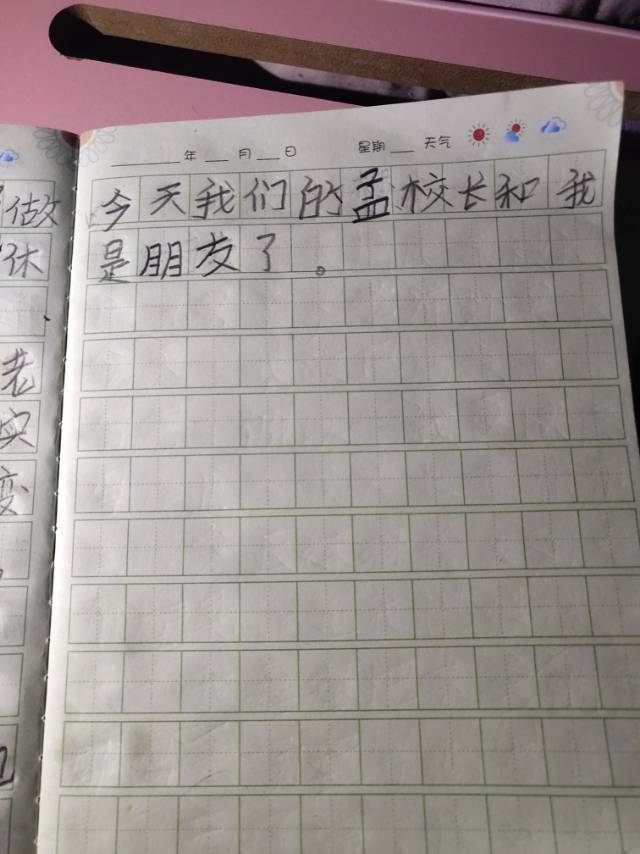 年 月 日 星期 天气
做 今天我们的孟校长和我
休 是朋友了。
老
实
变